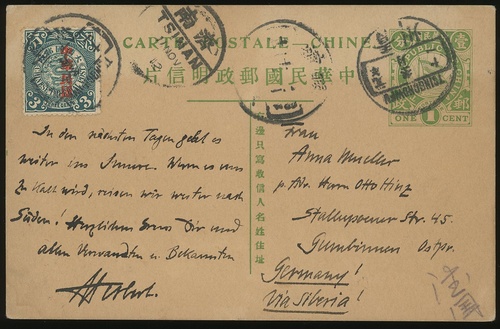 CARTE POSTALE - CHINE
中華民國郵政明信片
TSINAN
濟南
3
3
ONE 1 CENT
REPUBLIC
In den nächsten Tagen geht es
weiter ins Innere. Wenn es uns
zu kalt wird, reisen wir weiter nach
Süden! Herzlichen Gruss Dir und
allen Verwandten u. Bekannten
Herbert.
此邊只寫收信人名姓住址
Frau
Anna Mueller
p. Adr. Herrn Otto Hinz
Stallupoener Str. 45.
Gumbinnen Ostpr.
Germany!
Via Siberia!